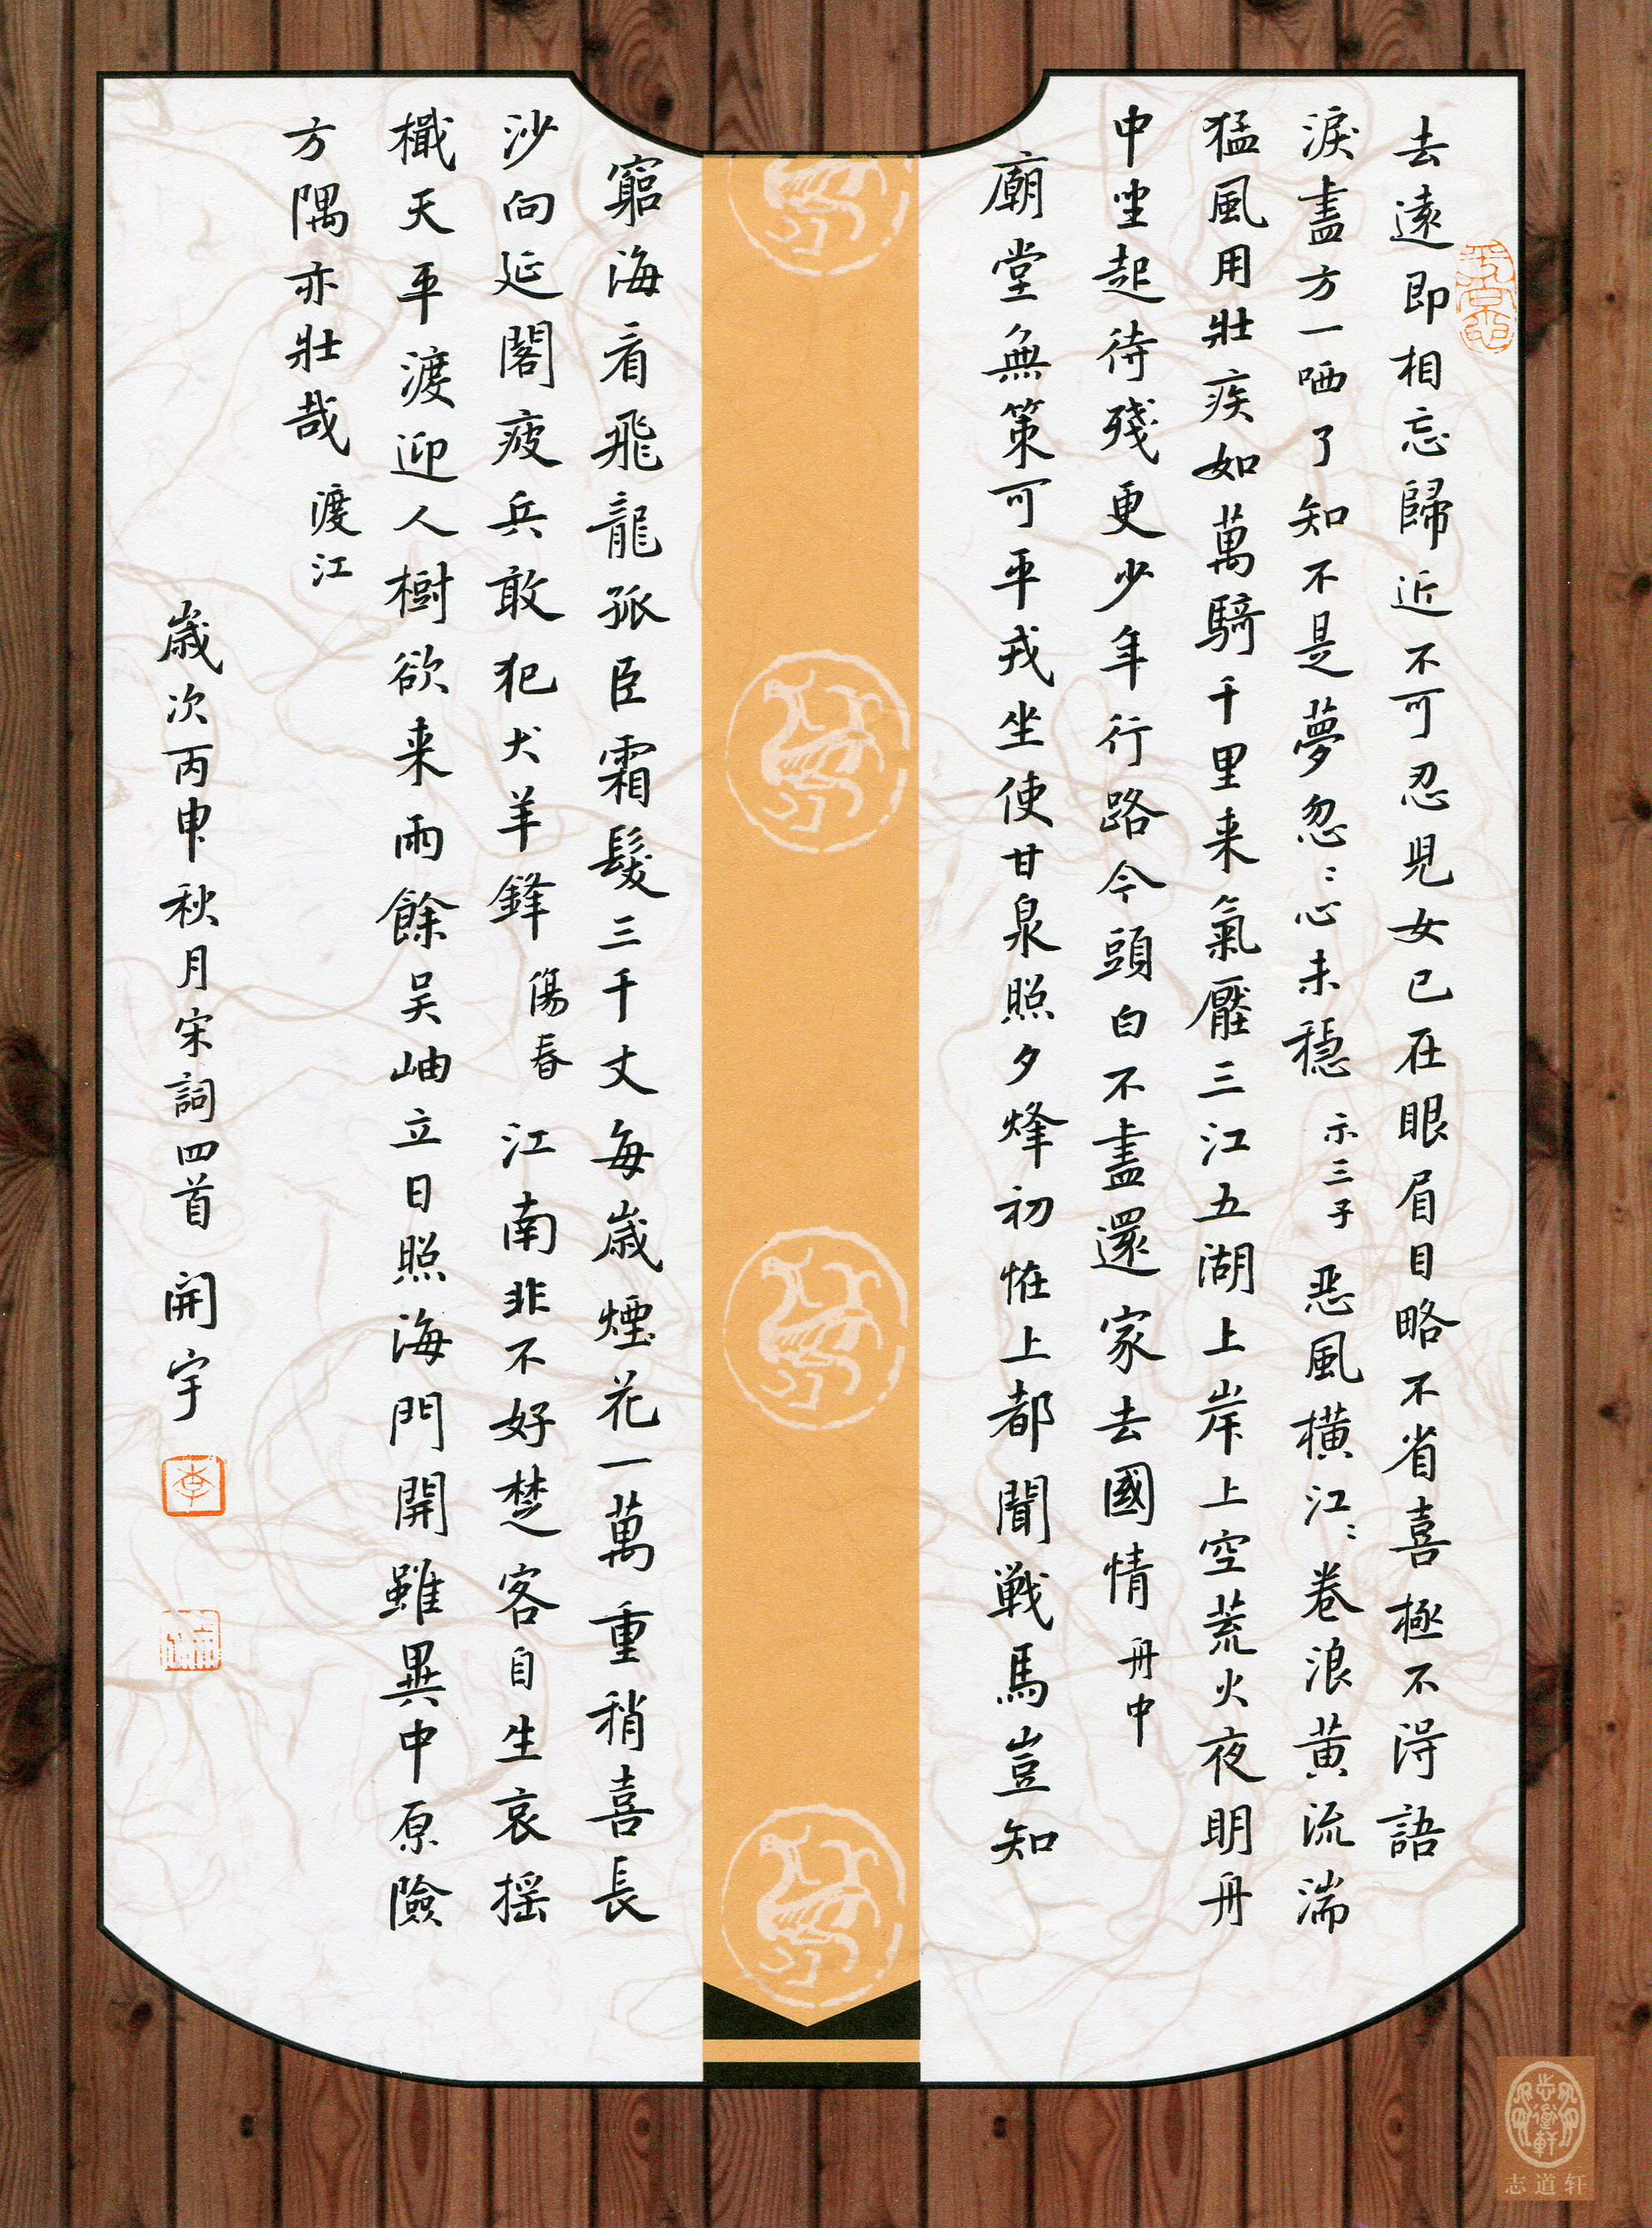 去遠即相忘歸近不可忍兒女已在眼眉目略不省喜極不淂語
淚盡方一哂了知不是夢忽〻心未穩 示三子 恶風橫江〻卷浪黄流湍
猛風用壯疾如萬騎千里来氣壓三江五湖上岸上空荒火夜明舟
中坐起待殘更少年行路今頭白不盡還家去國情 舟中
廟堂無策可平戎坐使甘泉照夕烽初恠上都聞戰馬豈知
窮海看飛龍孤臣霜髮三千丈每歲煙花一萬重稍喜長
沙向延閣疲兵敢犯犬羊鋒 傷春 江南非不好楚客自生哀摇
檝天平渡迎人樹欲来雨餘吴岫立日照海門開雖異中原險
方隅亦壯哉 渡江
歲次丙申秋月宋詞四首 開宇
李
志道軒
志道轩